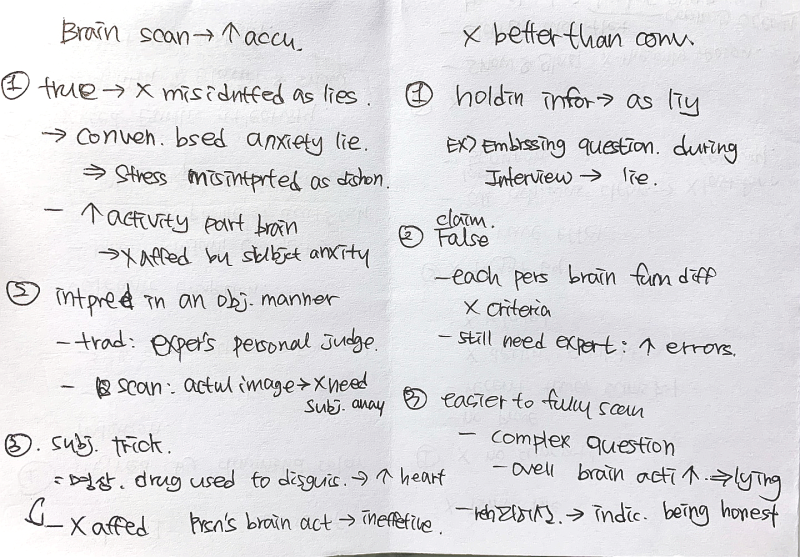 Brain scan → ↑ accu.
① true → X misidntfed as lies.
→ Conven. bsed anxiety lie.
⇒ Stress misintprted as dishon.
- ↑ activity part brain
→ X affed by subjet anxity
② intpred in an obj. manner
- trad: exper's personal judge.
- B scan: actul image → X need
subj. anay
③. subj. trick.
= 명상. drug used to disguis. → ↑ heart
- X affed Prsn's brain act → ineffetive.
X better than conv.
① holdin infor → as liy
EX) Embrssing question. during
Interview → lie.
claim.
② False
- each pers brain furn diff
X criteria
- still need expert: ↑ errors.
③ easier to fully scan
- complex question
- ovell brain acti ↑. ⇒ lying
- → indic. being honest